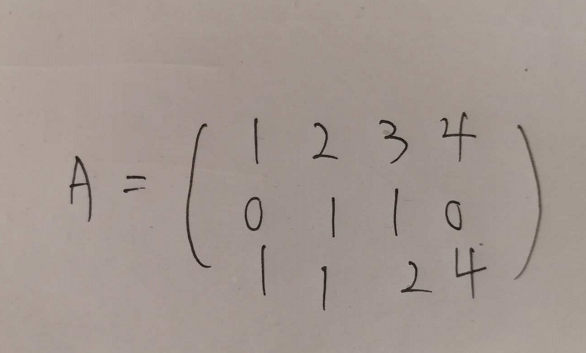 A = ( 1 2 3 4
0 1 1 0
1 1 2 4 )